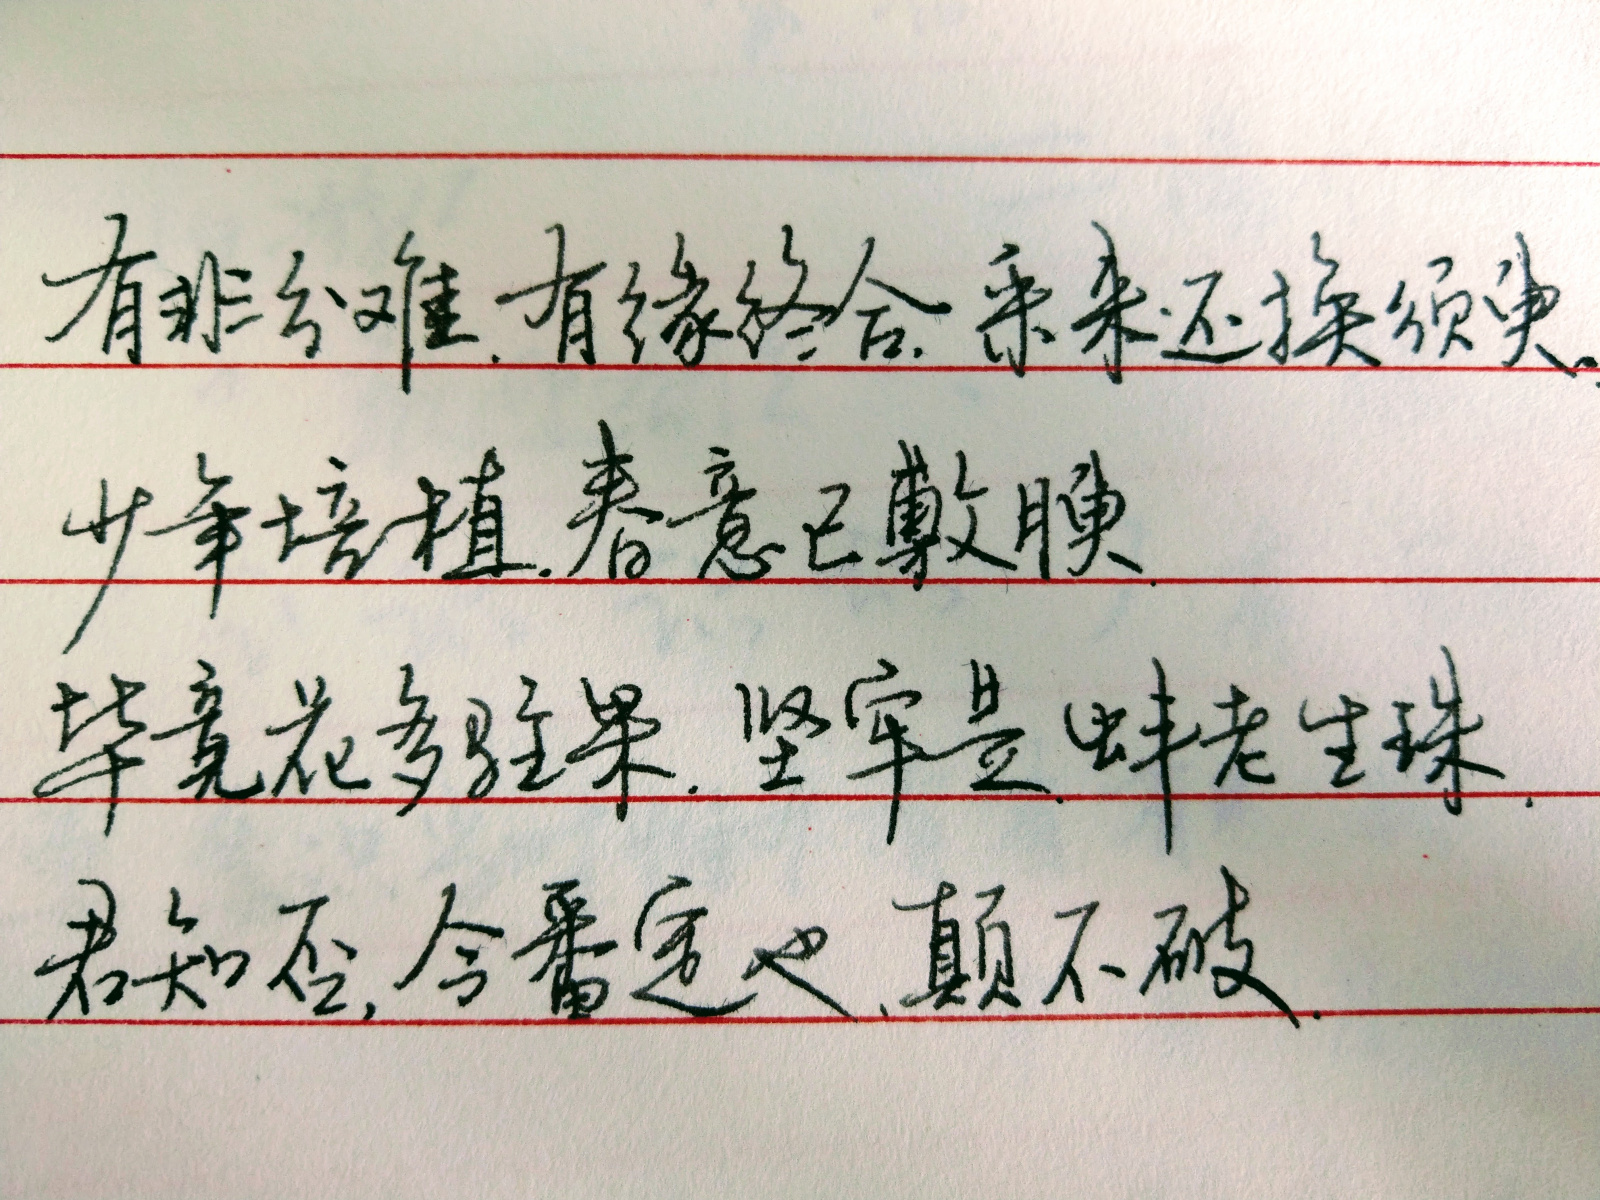 有非分难.有缘终合.采来还换须臾.
少年培植.春意已敷腴.
毕竟花多驻果.坚牢是.蚌老生珠.
君知否,今番定也,颠不破.